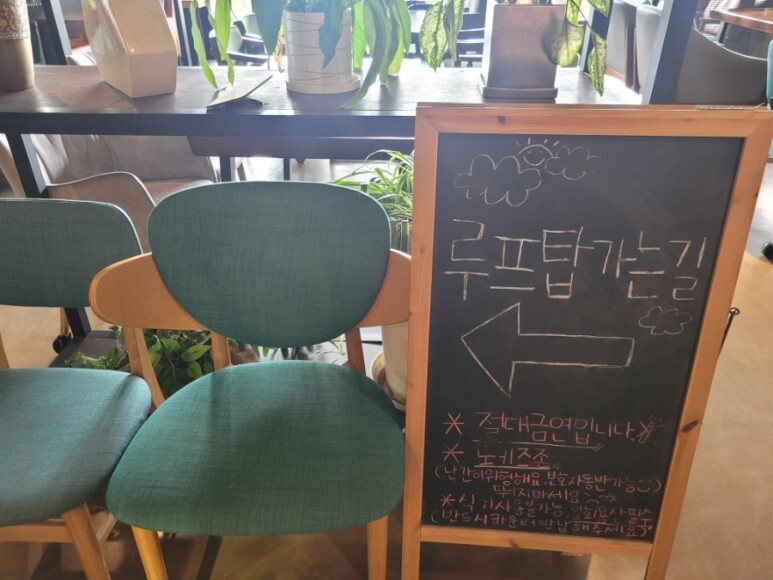 루프탑가는길
* 절대금연입니다. *
* 노키즈존
(난간이위험해요 보호자동반가능)
뛰지마세요
* 식기사용불가능 일회용사용필수
(반드시카운터반납해주세요)